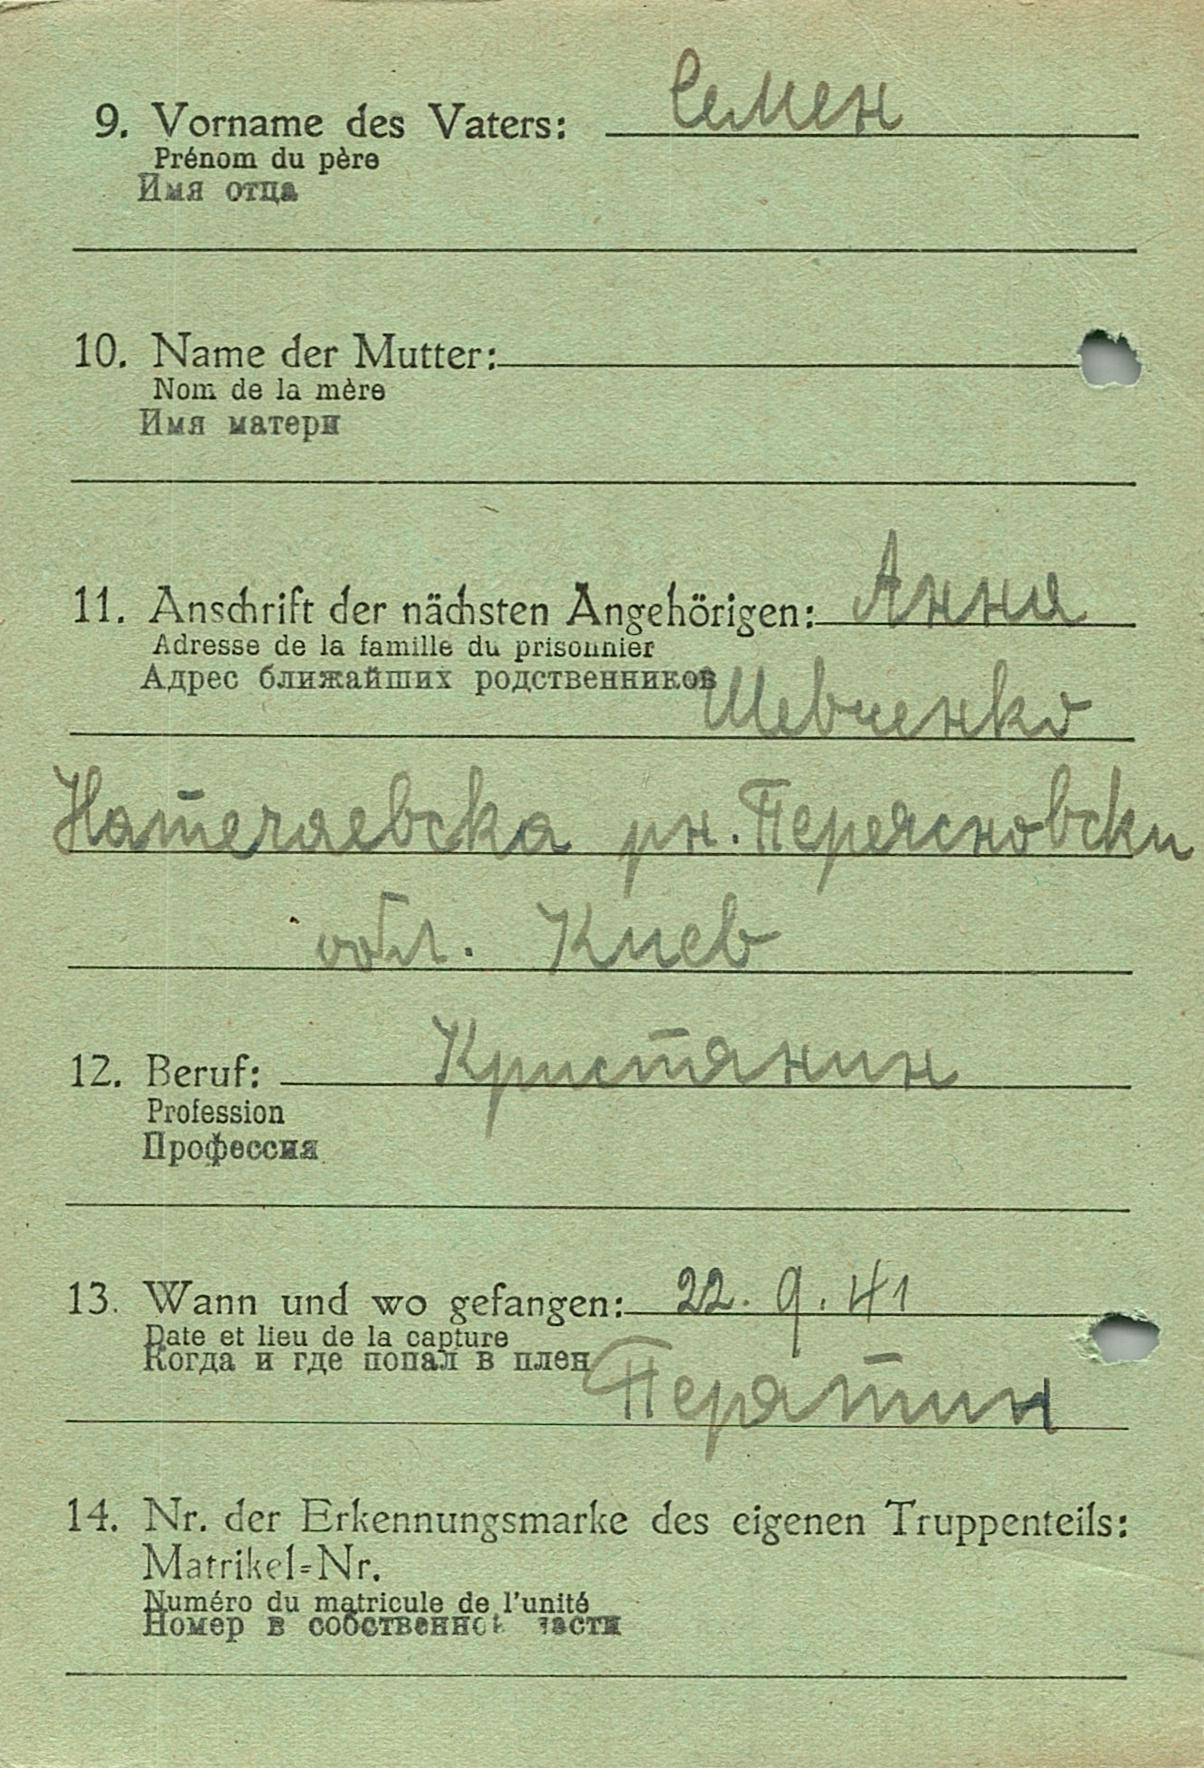 9. Vorname des Vaters: Семен
Prénom du père
Имя отца
10. Name der Mutter:
Nom de la mère
Имя матери
11. Anschrift der nächsten Angehörigen: Анна
Adresse de la famille du prisonnier
Адрес ближайших родственников Шевченко
рн. Переясновски
обл. Киев
12. Beruf: Кристянин
Profession
Профессия
13. Wann und wo gefangen: 22. 9. 41
Date et lieu de la capture
Когда и где попал в плен Перятин
14. Nr. der Erkennungsmarke des eigenen Truppenteils:
Matrikel=Nr.
Numéro du matricule de l'unité
Номер в собственной части